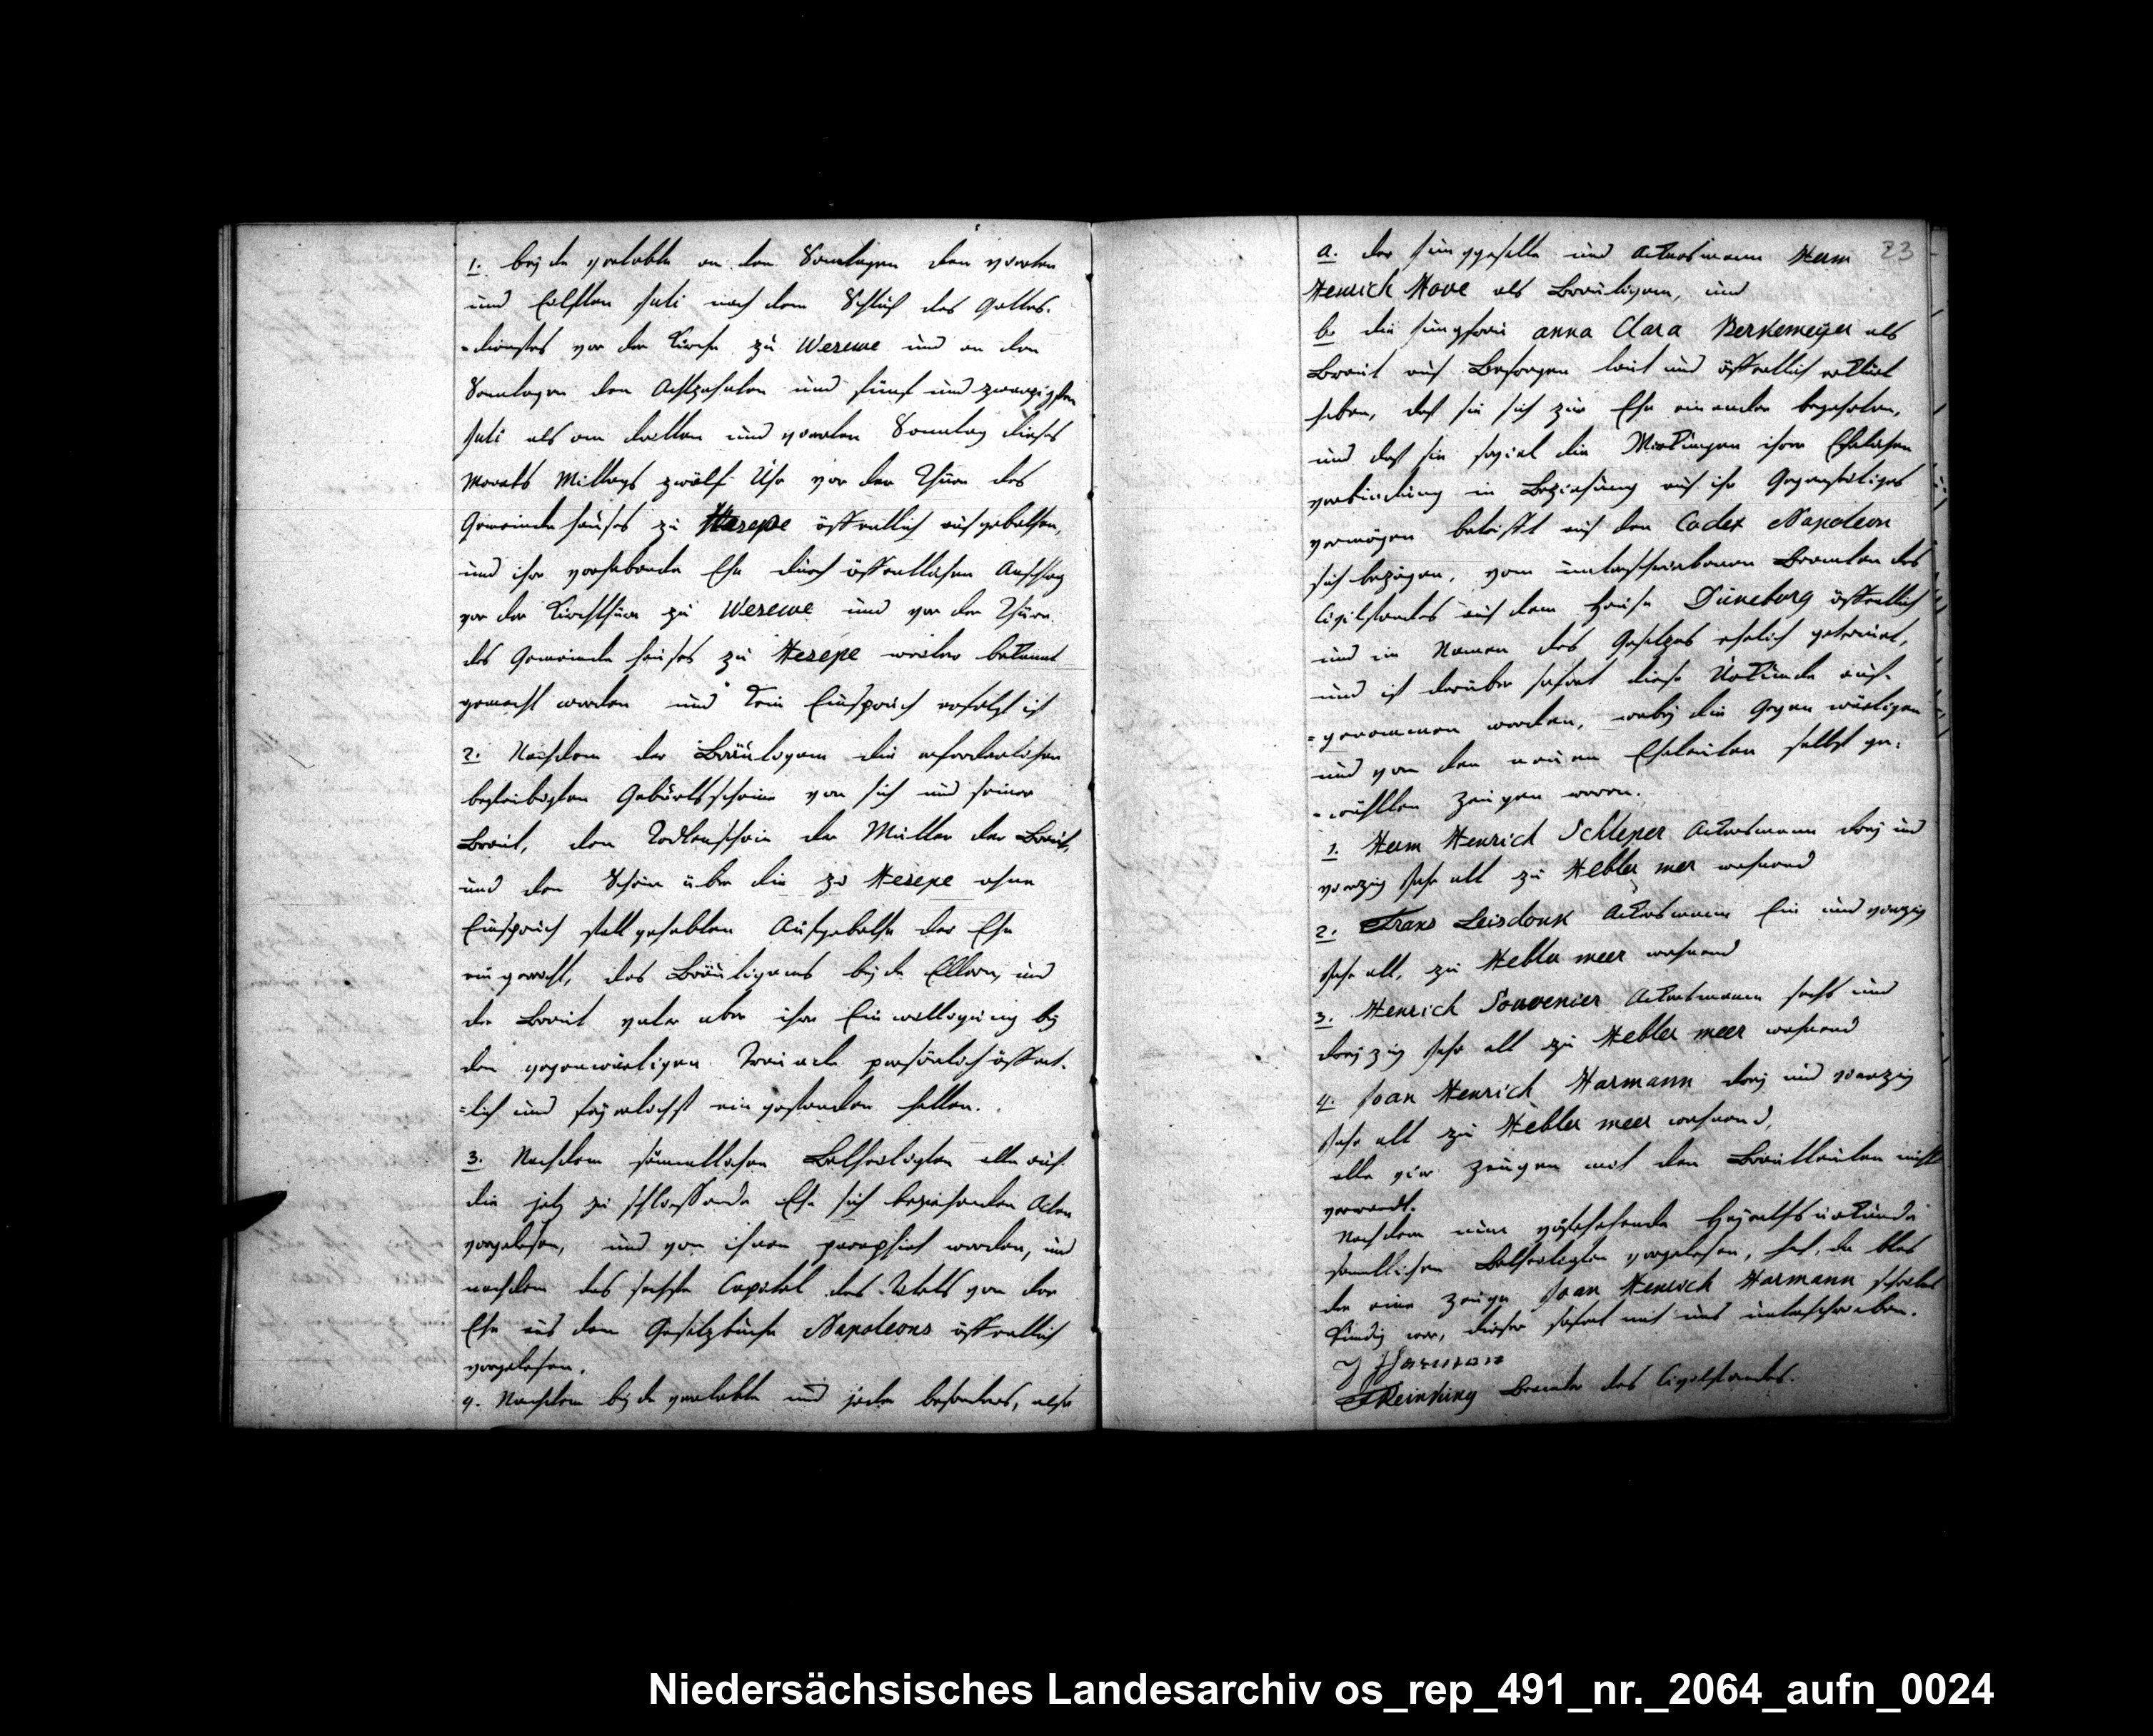 1. beyde verlobte an den Sonntagen den vierten
und Eilften Juli nach dem Schluß des Gottes-
-dienstes vor der Kirche zu Wesuwe und an den
Sonntagen den Achtzehnten und fünf und zwanzigsten
Juli als am dritten und vierten Sonntag dieses
Monats Mittags zwölf Uhr vor der Thüre des
Gemeinde hauses zu Hesepe öffentlich aufgebothen,
und ihre vorhabende Ehe durch öffentlichen Anschlag
vor der Kirchthüre zu Wesuwe und vor der Thüre
des Gemeinde hauses zu Hesepe weiter bekannt
gemacht worden und kein Einspruch erfolgt ist
2. Nachdem der Bräutigam die erforderlichen
beglaubigten Geburtsscheine von sich und seiner
Braut, den Todtenschein der Mutter der Braut,
und den Schein über die zu Hesepe ohne
Einspruch statt gehabten Aufgebothe der Ehe
eingereicht, des Bräutigams beyde Eltern, und
der Braut vater aber ihre Einwilligung bey
der gegenwärtigen Trau acte persönlich öffent-
=lich und feyerlichst eingestanden hatten.
3. Nachdem sämmtlichen Betheiligten alle auf
die jetz zu schließende Ehe sich beziehenden Acten
vorgelesen, und von ihnen paraphirt worden, und
nachdem das sechste Capitel des Titels von der
Ehe aus dem Gesetzbuche Napoleons öffentlich
vorgelesen.
4. Nachdem beyde verlobte und jeder besonders, als
a. der Junggeselle und Ackersmann Herm 23
Henrich Hove als Bräutigam, und
b. die Jungfrau anna Clara Berkemeyer als
Braut auf Befragen laut und öffentlich erklärt
haben, daß sie sich zur Ehe einander begehrten,
und daß sie soviel die Wirkungen ihrer Ehelichen
verbindung in Beziehung auf ihr Gegenseitiges
vermögen betrifft auf den Codex Napoleon
sich bezögen, vom unterschriebenen Beamten des
Civilstandes auf dem Hause Düneburg öffentlich
und im Namen des Gesetzes ehelich getrauet,
und ist darüber sofort diese Urkunde auf-
=genommen worden, wobey die Gegenwärtigen
und von den neuen Eheleuten selbst ge-
-wählten Zeugen waren.
1. Herm Henrich Schleper Ackersmann drey und
vierzig Jahr alt zu Hebler mer wohnend
2. Frans Leisdonk Ackersmann Ein und vierzig
Jahr alt, zu Hebler meer wohnend
3. Henrich Souvenier Ackersmann sechs und
dreyzig Jahr alt zu Hebler meer wohnend
4. Joan Henrich Harmann drey und vierzig
Jahr alt zu Hebler meer wohnend,
alle vier Zeugen mit den Brautleuten nicht
verwandt.
Nachdem nun vorstehende Heyrathsurkunde
samtlichen Betheiligten vorgelesen, hat, da blos
der eine Zeuge Joan Henrich Harmann schreibens
kundig war, dieser sofort mit uns unterschrieben.
J Harman
Reinking Beamter des Civilstandes.
Niedersächsisches Landesarchiv os_rep_491_nr._2064_aufn_0024